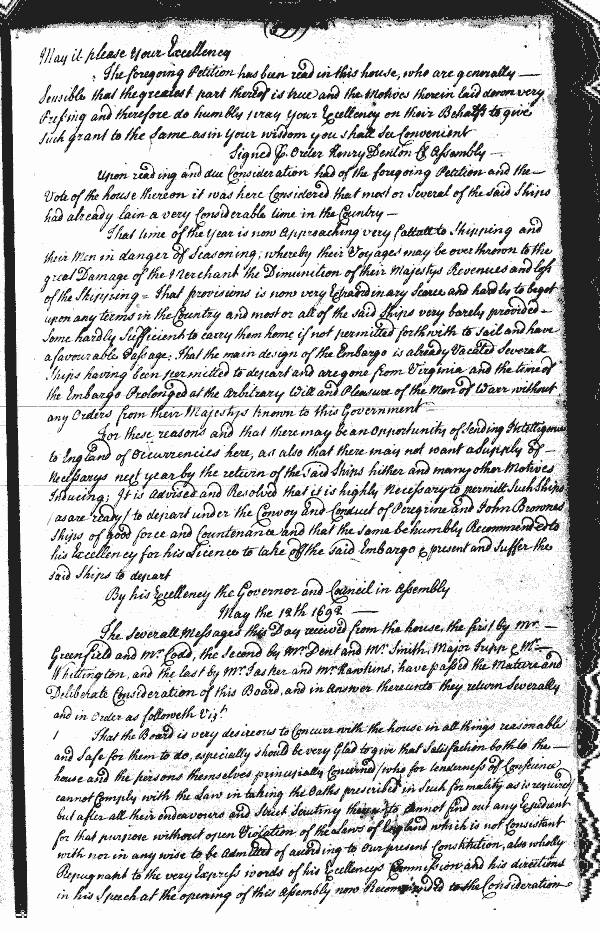 May it please Your Excellency
The foregoing Petition has been read in this house, who are generally
Sensible that the greatest part thereof is true and the Motives therein laid down very
Pressing and therefore do humbly pray Your Excellency on their Behalfs to give
such grant to the Same as in Your wisdom you shall see Convenient
Signed p. Order Henry Denton Cl Assembly
Upon reading and due Consideration had of the foregoing Petition and the
Vote of the house thereon it was here Considered that most or Several of the said Ships
had already lain a very Considerable time in the Country
That time of the Year is now Approaching very to Shipping and
their Men in danger of Seasoning; whereby their Voyages may be overthrown to the
great Damage of the Merchant the Diminution of their Majestys Revenues and loss
of the Shipping = That provisions is now very Extraordinary Scarce and hard to be got
upon any terms in the Country and most or all of the said Ships very barely provided
Some hardly Sufficient to carry them home if not permitted forthwith to Sail and have
a favourable Passage; That the main design of the Embargo is already Vacated Severall
Ships having been permitted to depart and are gone from Virginia and the time of
the Embargo Prolonged at the Arbitrary Will and Pleasure of the Men of Warr without
any Orders from their Majestys known to this Government
For these reasons and that there may be an Opportunity of Sending Intelligence
to England of Ocurrencies here, as also that there may not want a Supply of
Necessarys next year by the return of the Said Ships hither and many other Motives
Inducing; It is Advised and Resolved that it is highly Necessary to permitt Such Ships
(as are ready) to depart under the Convoy and Conduct of Peregrine and John Brownes
Ships of good force and Countenance and that the same be humbly Recommended to
his Excellency for his Licence to take off the Said Embargo present and Suffer the
said Ships to depart
By his Excellency the Governor and Council in Assembly
May the 12th 1692
The Severall Messages this Day received from the house, the first by Mr
Greenfield and Mr. Codd, the Second by Mr. Dent and Mr. Smith, Major Supp & Mr
Whittington, and the last by Mr. Tasker and Mr. Hawkins, have passed the Mature and
Deliberate Consideration of this Board, and in Answer thereunto they return Severally
and in Order as followeth Vizt
1 That the Board is very desireous to Concurr with the house in all things reasonable
and Safe for them to do, especially should be very Glad to give that Satisfaction both to the
house and the persons themselves principally Concerned (who for tenderness of Conscience
cannot Comply with the Law in taking the Oaths prescribed in Such formality as is required)
but after all their endeavours and Strict Scrutiny cannot find out any Expedient
for that purpose without open Violation of the Laws of England which is not Consistant
with nor in any wise to be Admitted of according to Our present Constitution, also wholly
Repugnant to the very Express words of his Excellencys Commission and his directions
in his Speech at the opening of this Assembly now Recommended to the Consideration